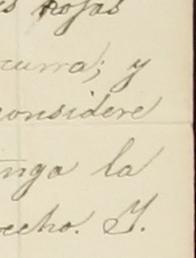 s Rojas
curra; y
considere
enga la
echo. Y.